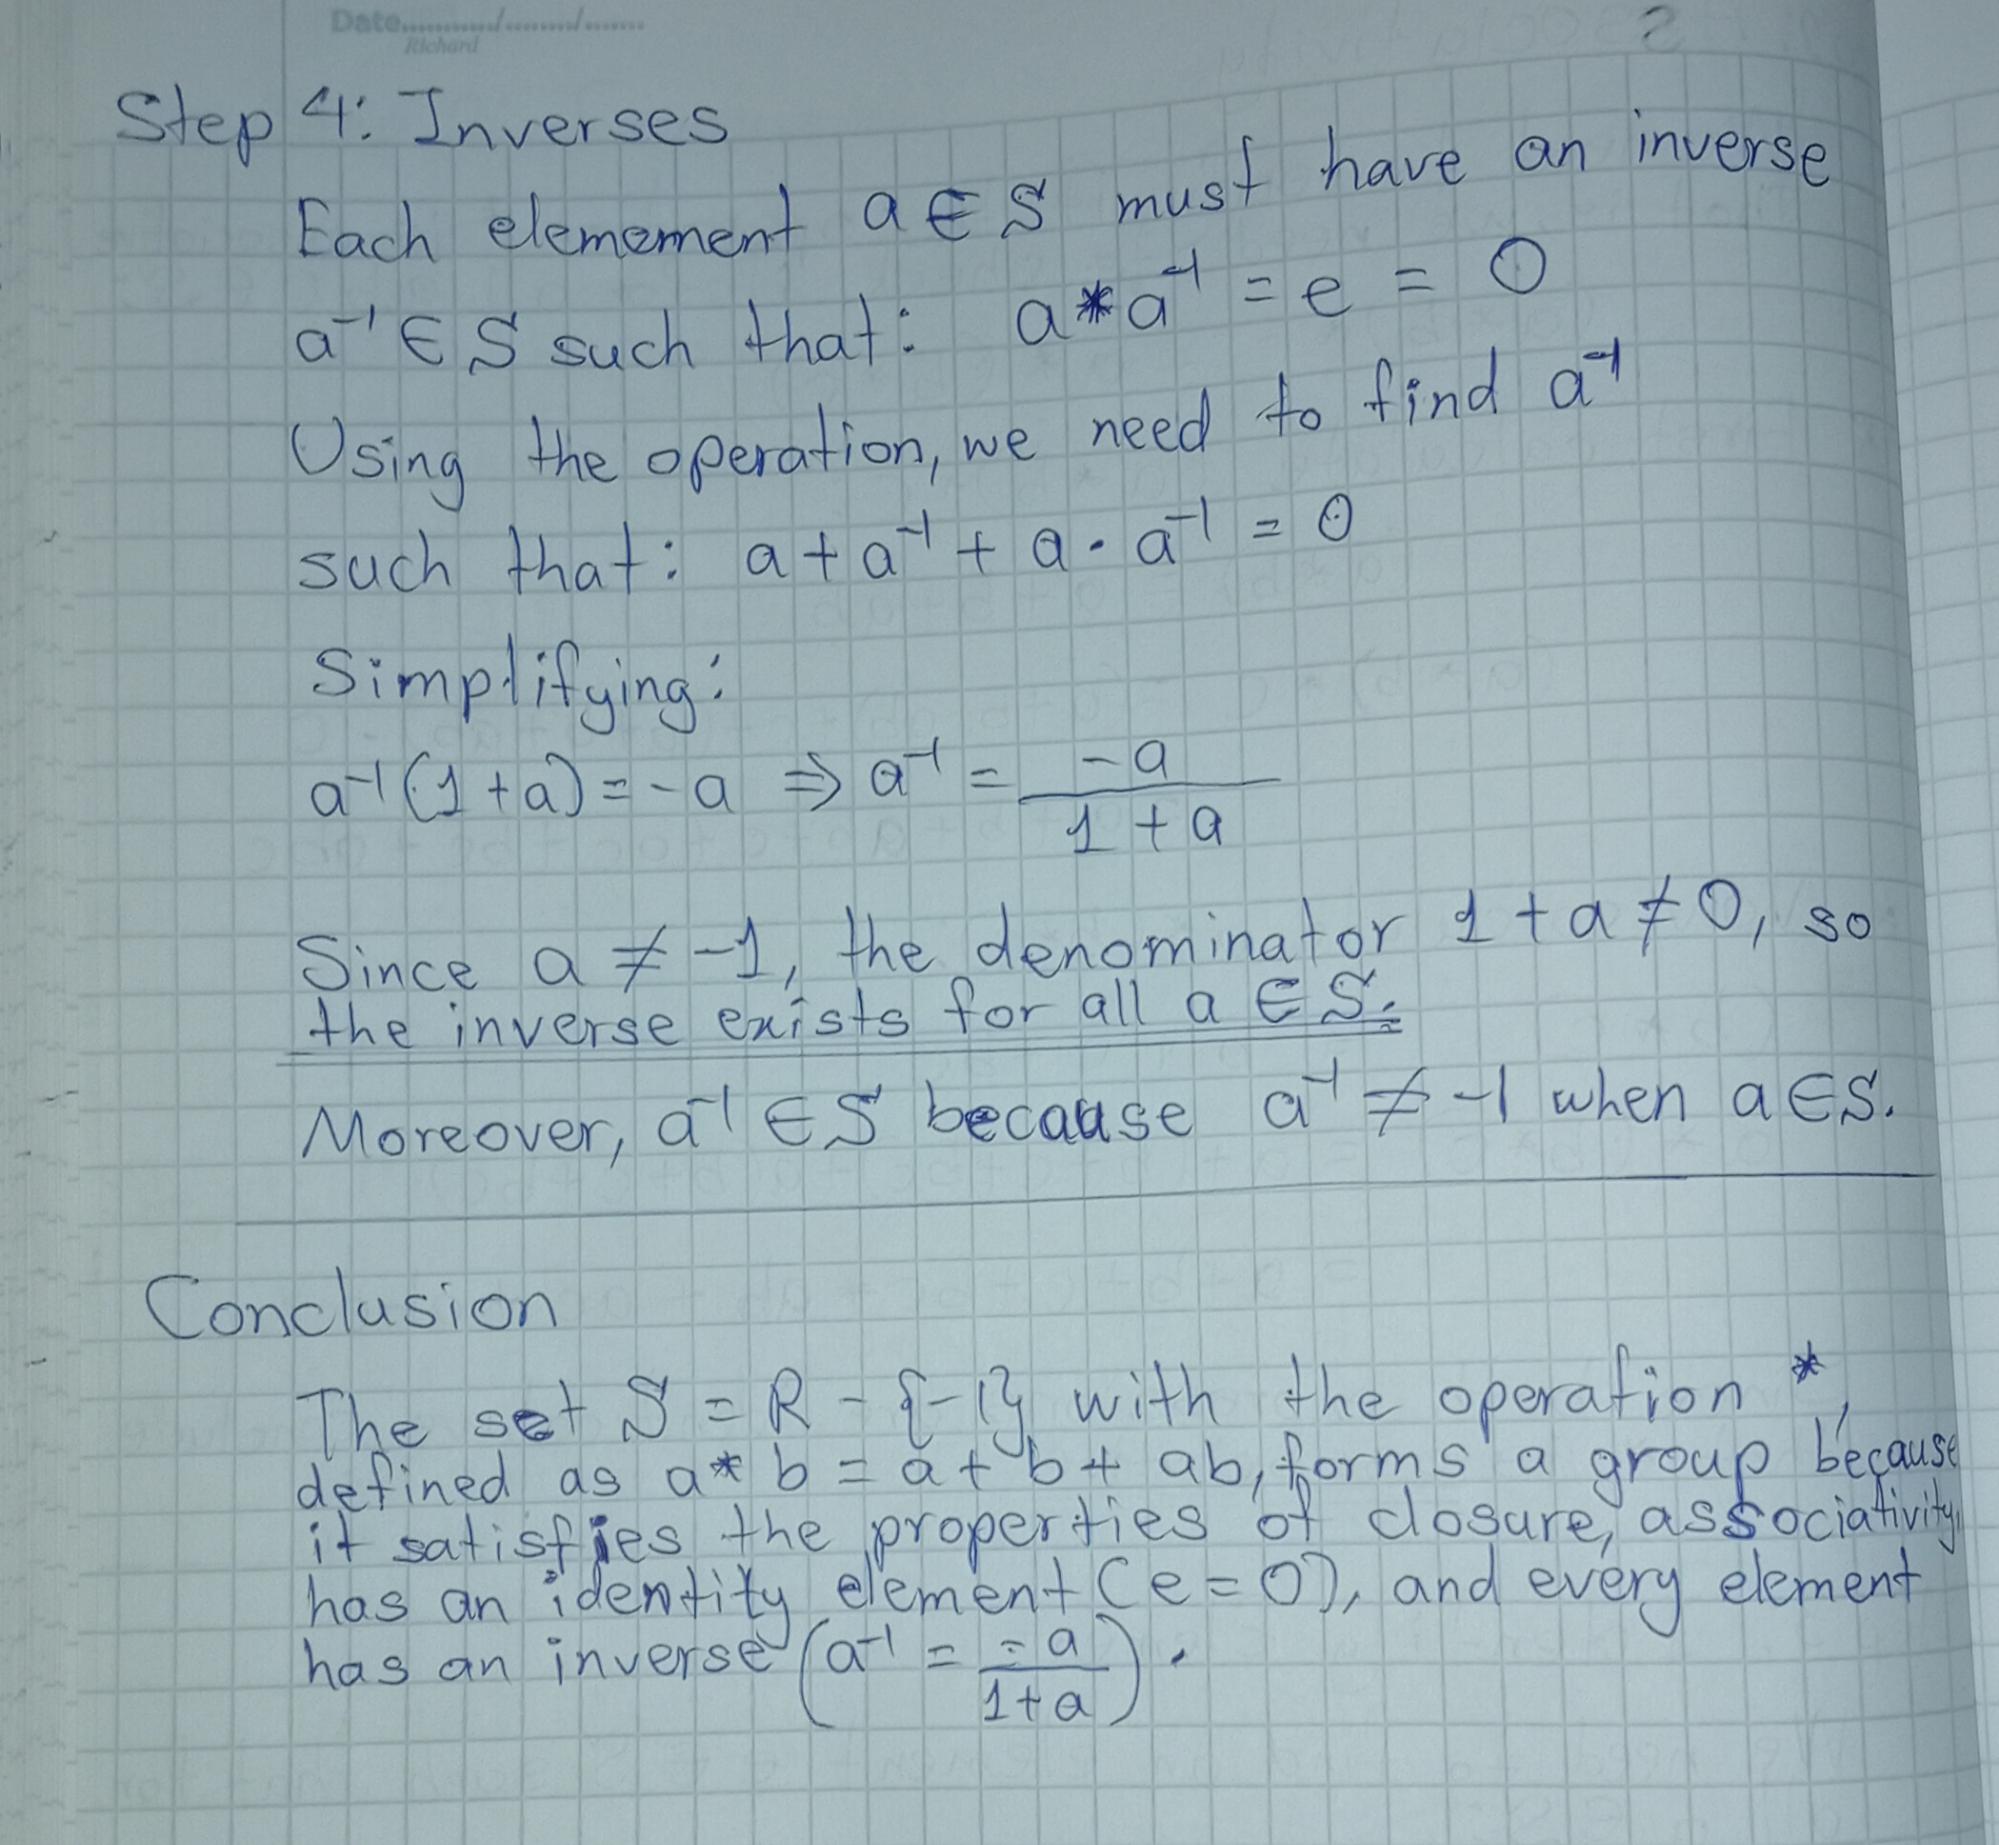 Date.........../........./.......
Richard
Step 4: Inverses
Each elemement a ∈ S must have an inverse
a⁻¹ ∈ S such that: a * a⁻¹ = e = 0
Using the operation, we need to find a⁻¹
such that: a + a⁻¹ + a · a⁻¹ = 0
Simplifying:
a⁻¹(1 + a) = -a ⇒ a⁻¹ = -a / (1 + a)
Since a ≠ -1, the denominator 1 + a ≠ 0, so
the inverse exists for all a ∈ S.
Moreover, a⁻¹ ∈ S because a⁻¹ ≠ -1 when a ∈ S.
Conclusion
The set S = R - {-1} with the operation *,
defined as a * b = a + b + ab, forms a group because
it satisfies the properties of closure, associativity,
has an identity element (e = 0), and every element
has an inverse (a⁻¹ = -a / (1 + a)).